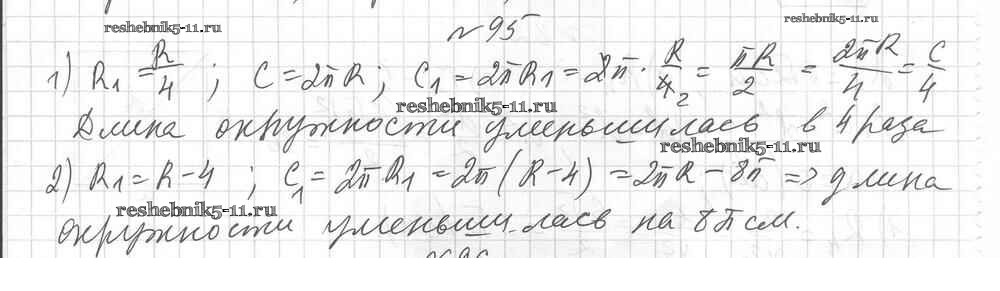 №95
reshebnik5-11.ru
reshebnik5-11.ru
1) R₁ = R/4 ; C = 2πR ; C₁ = 2πR₁ = 2π · R/4 2 = πR/2 = 2πR/4 = C/4
reshebnik5-11.ru
Длина окружности уменьшилась в 4 раза
reshebnik5-11.ru
2) R₁ = R - 4 ; C₁ = 2πR₁ = 2π(R - 4) = 2πR - 8π => длина
reshebnik5-11.ru
окружности уменьшилась на 8π см.